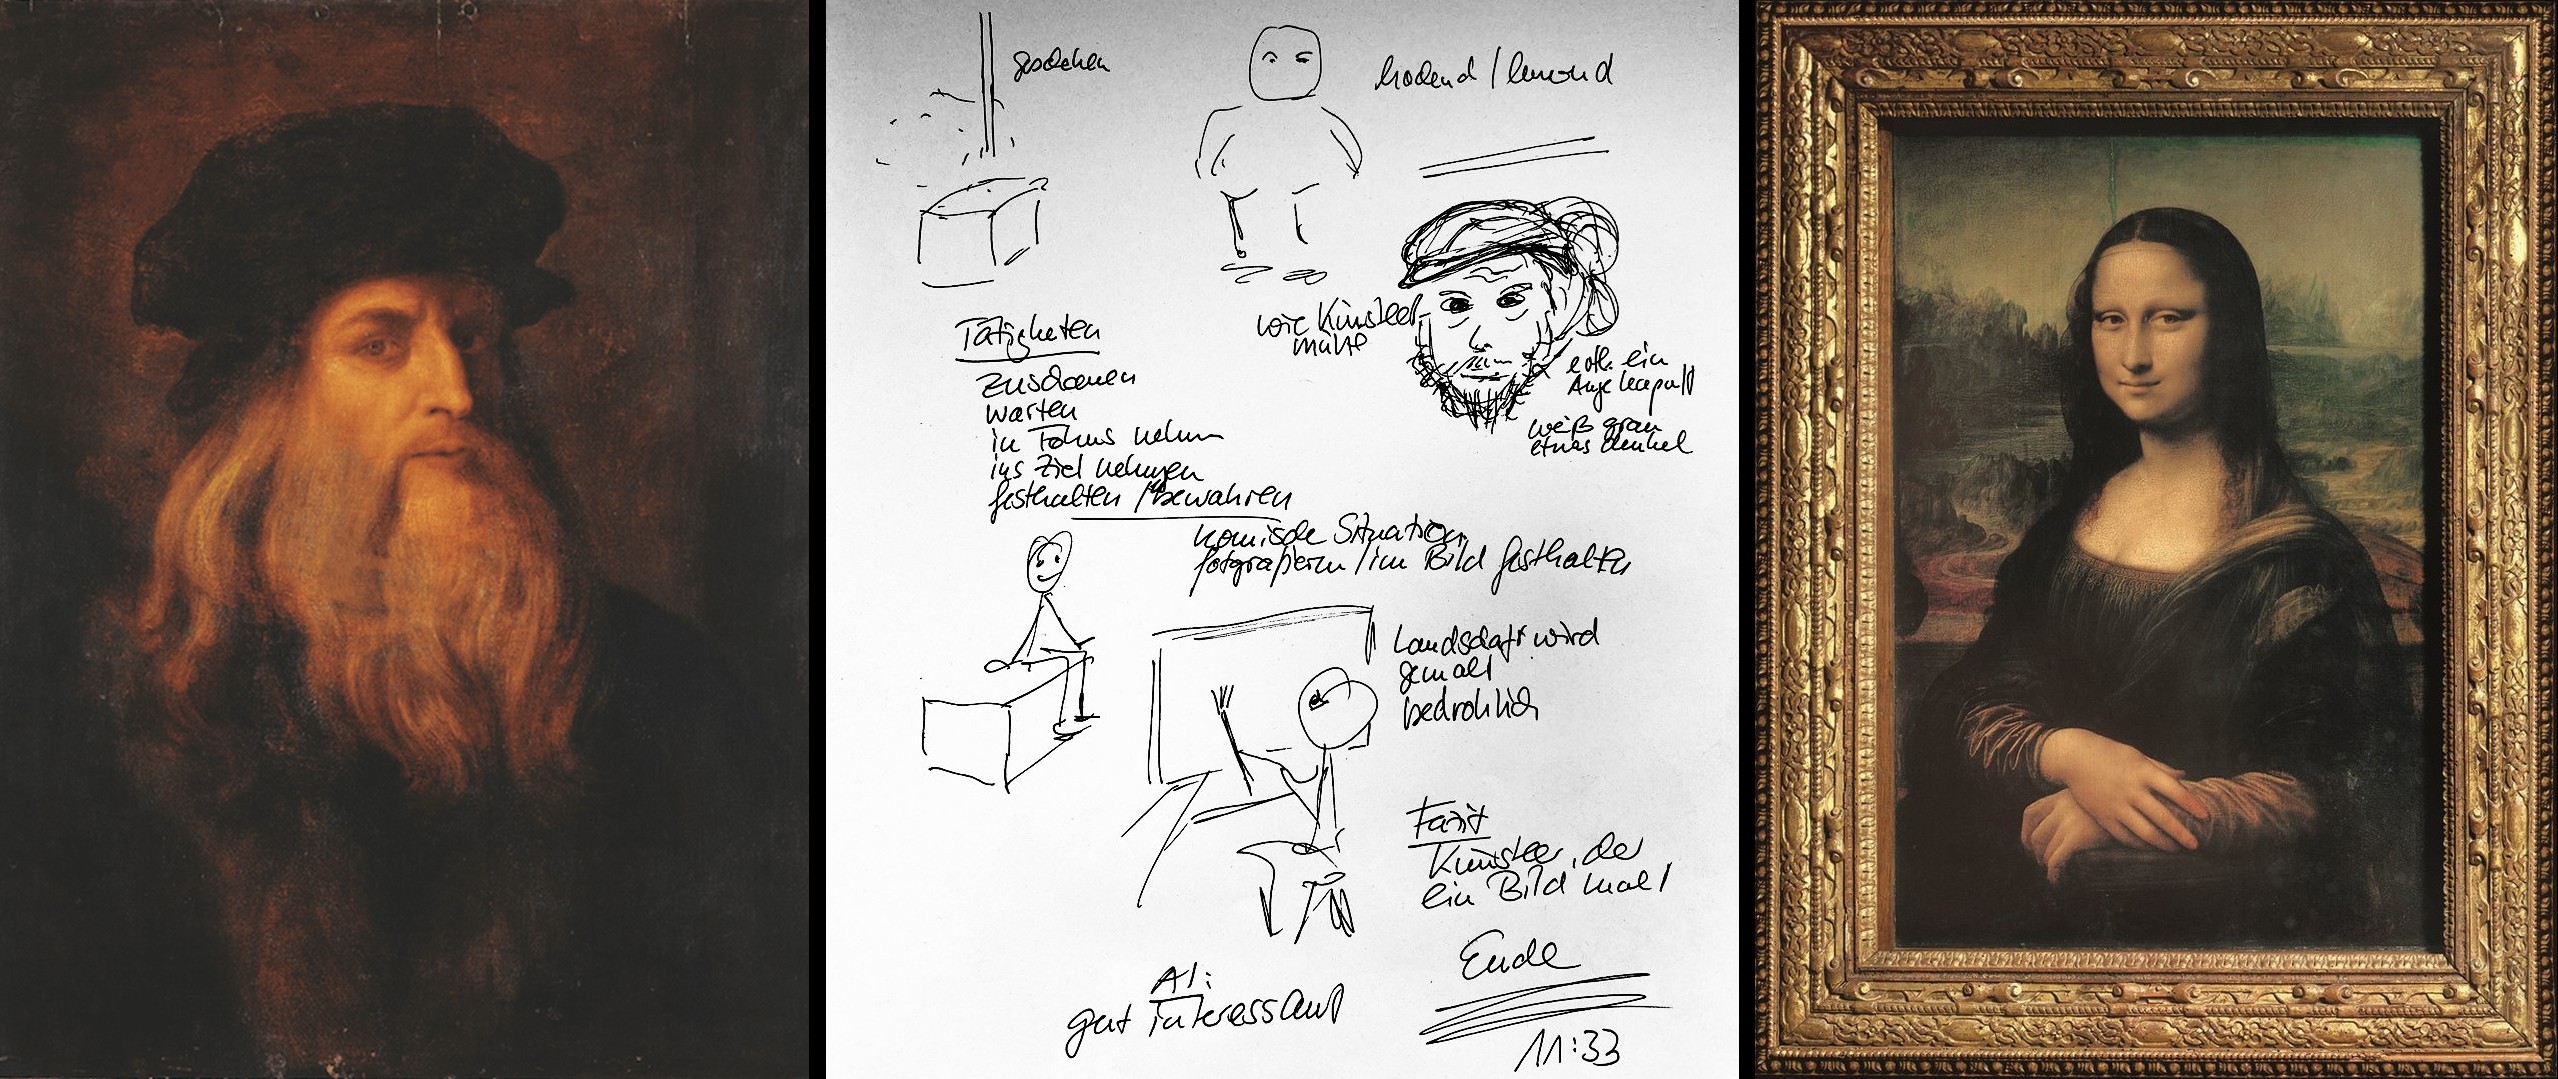 hockend / lernend
Tätigkeiten
zuschauen
warten
in Fokus nehm
ins Ziel nehmen
festhalten / bewahren
wie Künstler
etwas dunkel
weiß grau
komische Situation
fotografieren / im Bild festhalten
Landschaft wird
gemalt
bedrohlich
Fazit
Künstler, der
ein Bild malt
Ende
AI:
gut interessant
11:33